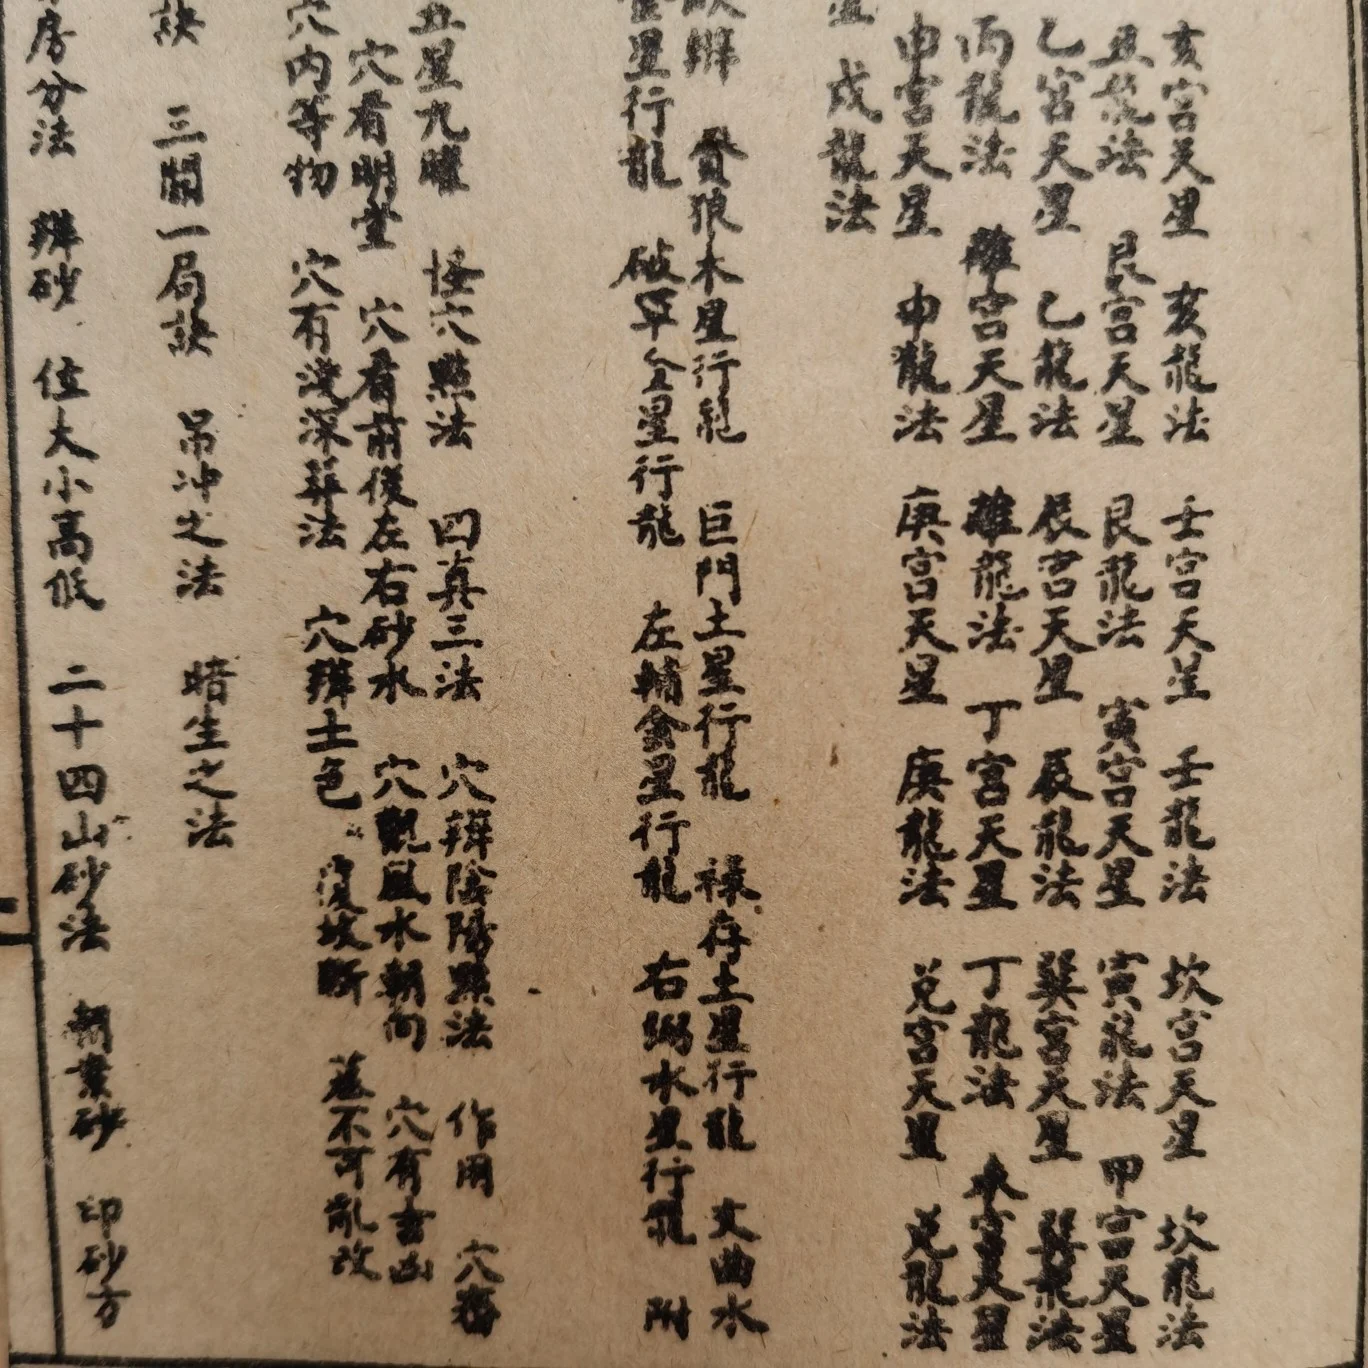 亥宮天星 亥龍法 壬宮天星 壬龍法 坎宮天星 坎龍法
丑龍法 艮宮天星 艮龍法 寅宮天星 寅龍法 甲宮天星
乙宮天星 乙龍法 辰宮天星 辰龍法 巽宮天星 巽龍法
丙龍法 離宮天星 離龍法 丁宮天星 丁龍法 宮天星
申宮天星 申龍法 庚宮天星 庚龍法 兌宮天星 兌龍法
戌龍法
辯 貪狼木星行龍 巨門土星行龍 祿存土星行龍 文曲水
星行龍 破軍金星行龍 左輔金星行龍 右弼水星行龍 附
五星九曜 怪穴點法 四真三法 穴辯陰陽點法 作用 穴
穴看明堂 穴看前後左右砂水 穴觀風水朝向 穴有吉凶
穴內等物 穴有淺深葬法 穴辯土色 墓不可亂改
訣 三關一局訣 吊冲之法 暗生之法
房分法 辯砂 位大小高低 二十四山砂法 朝案砂 印砂方